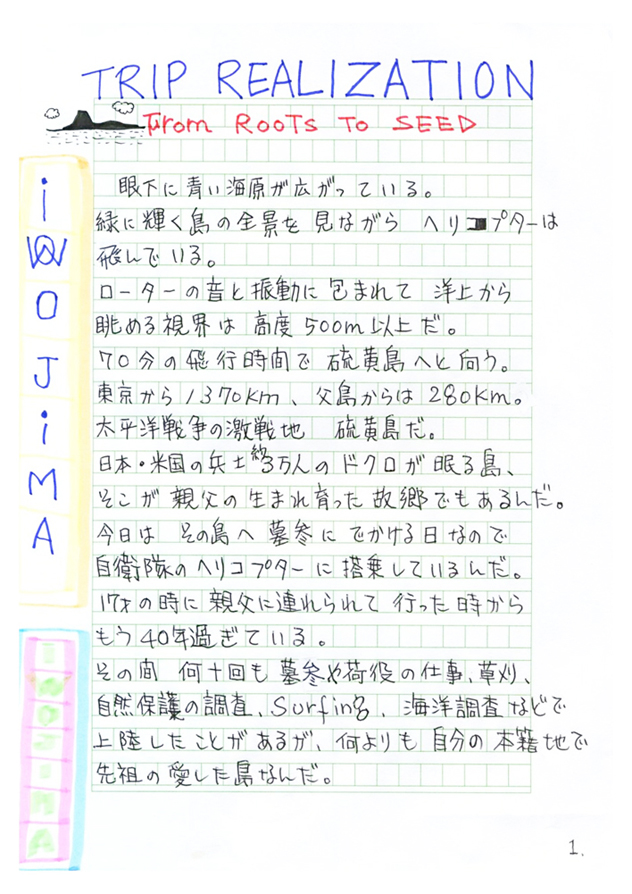 TRIP REALIZATION
From ROOTS TO SEED
iWOJiMA
眼下に青い海原が広がっている。
緑に輝く島の全景を見ながら ヘリコプターは
飛んでいる。
ローターの音と振動に包まれて 洋上から
眺める視界は 高度500m以上だ。
70分の飛行時間で 硫黄島へと向う。
東京から1370km、父島からは280km。
太平洋戦争の激戦地 硫黄島だ。
日本・米国の兵士約3万人のドクロが眠る島、
そこが親父の生まれ育った故郷でもあるんだ。
今日は その島へ墓参にでかける日なので
自衛隊のヘリコプターに搭乗しているんだ。
17才の時に親父に連れられて行った時から
もう40年過ぎている。
その間 何十回も墓参や荷役の仕事、草刈、
自然保護の調査、Surfing、海洋調査などで
上陸したことがあるが、何よりも自分の本籍地で
先祖の愛した島なんだ。
IWOJIMA
1.